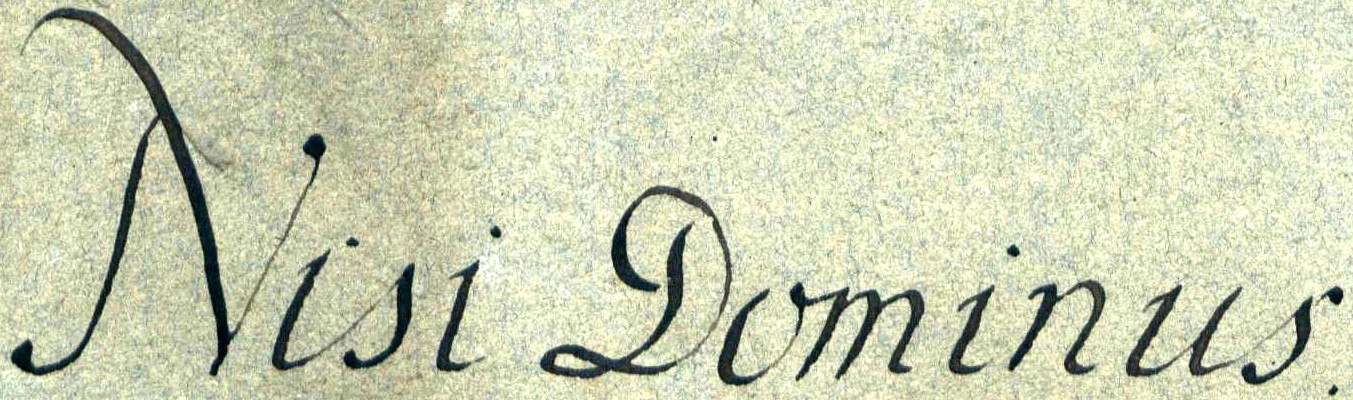 Nisi Dominus.